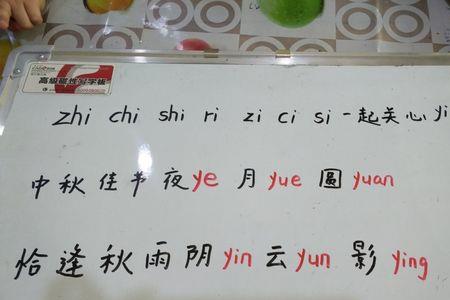 高级磁性写字板
zhi chi shi ri zi ci si 一起关心 yi
中秋佳节夜 ye 月 yue 圆 yuan
恰逢秋雨阴 yin 云 yun 影 ying